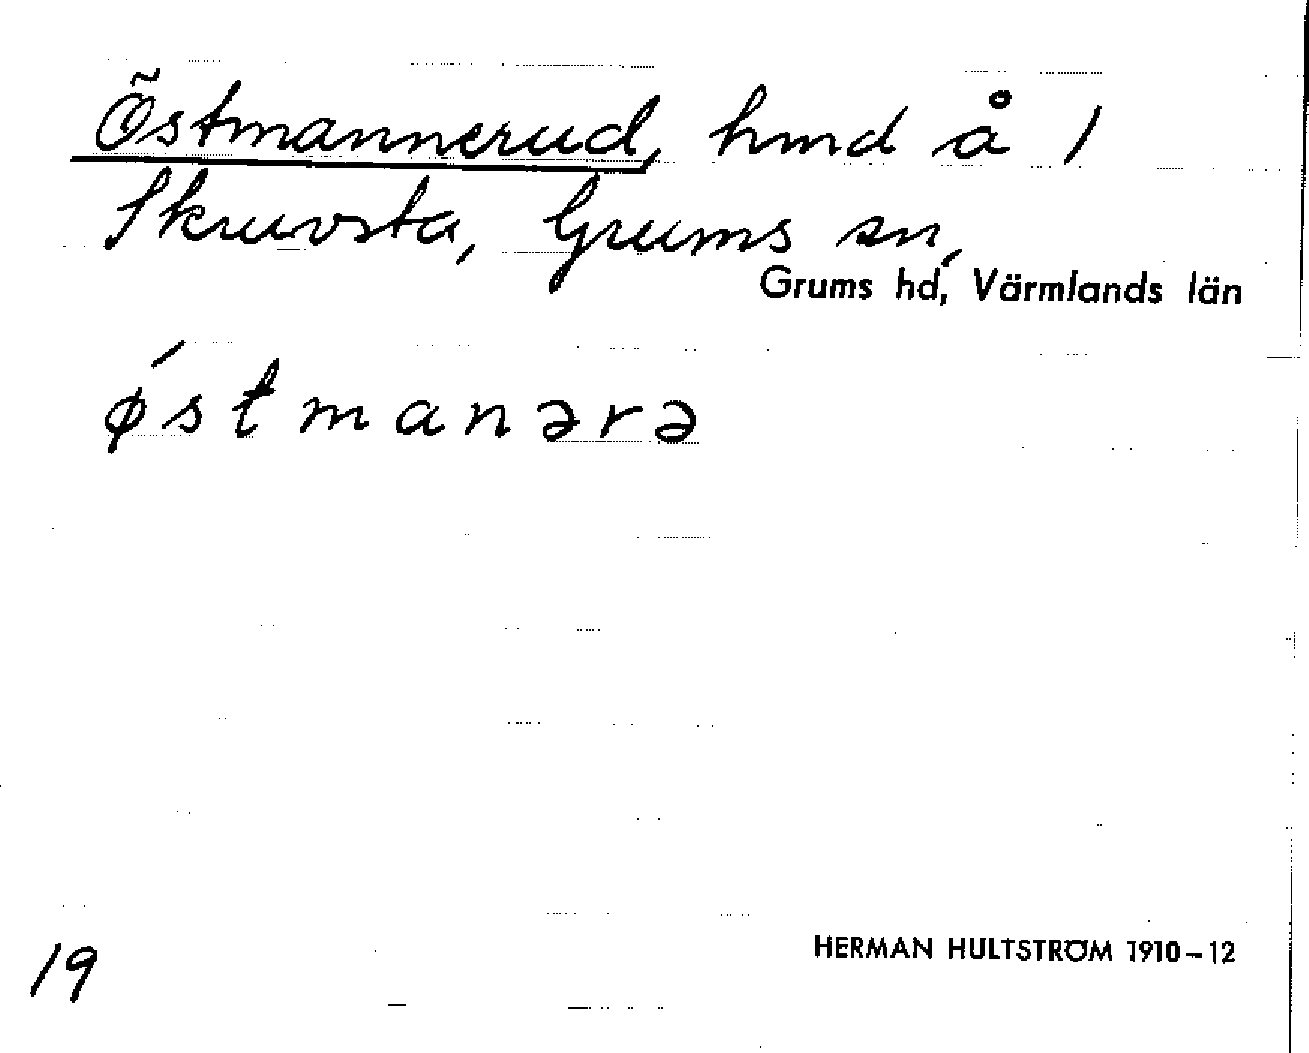 Östmannerud, hmd å 1
Skruvsta, Grums sn,
Grums hd, Värmlands län
ǿstmanərə
19
HERMAN HULTSTRÖM 1910–12